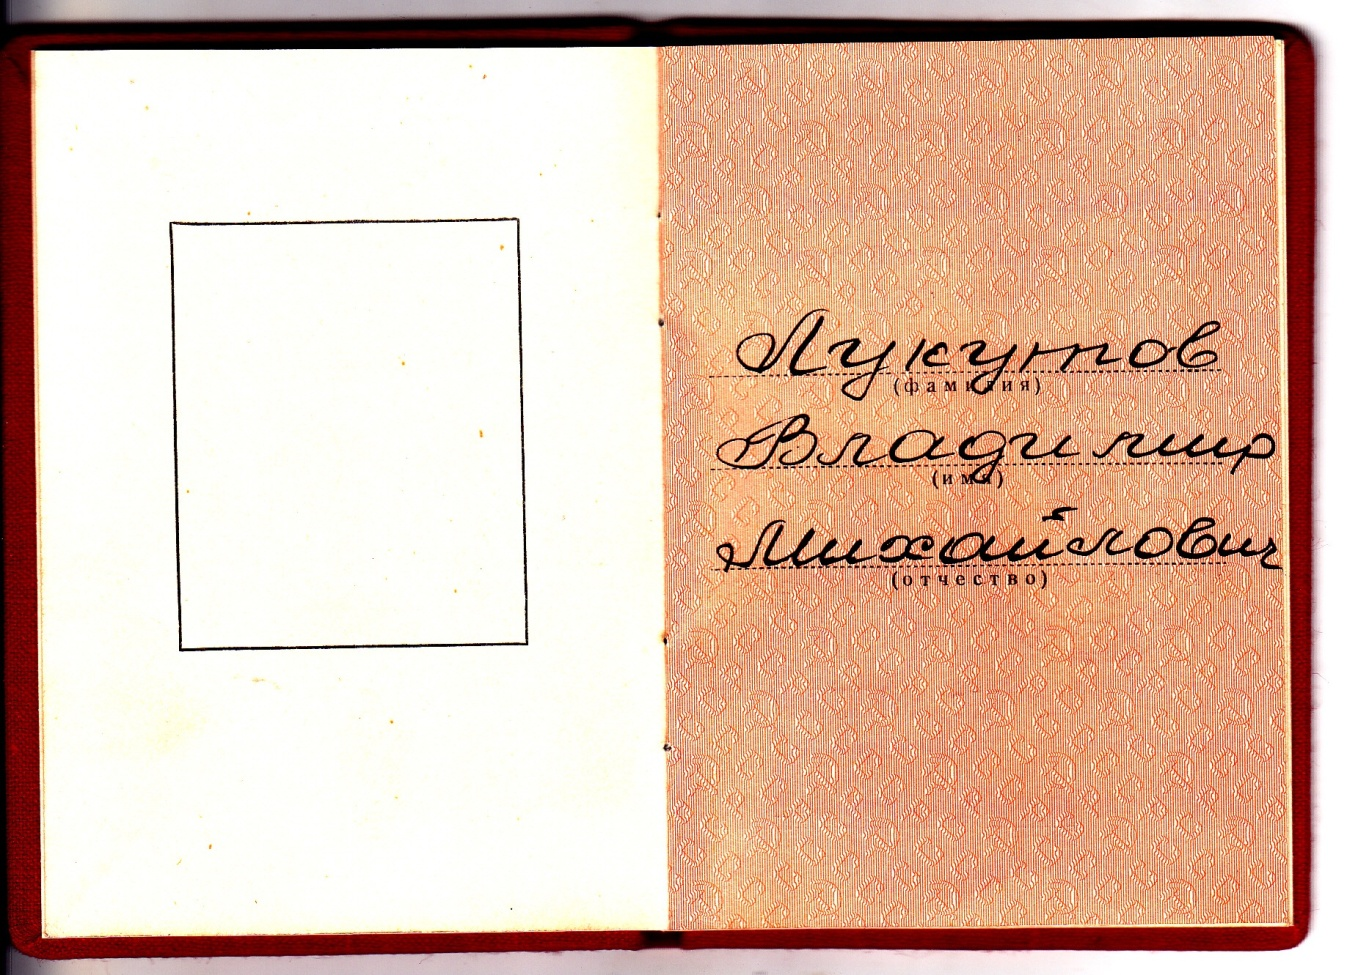 Лукутов
(фамилия)
Владимир
(имя)
Михайлович
(отчество)